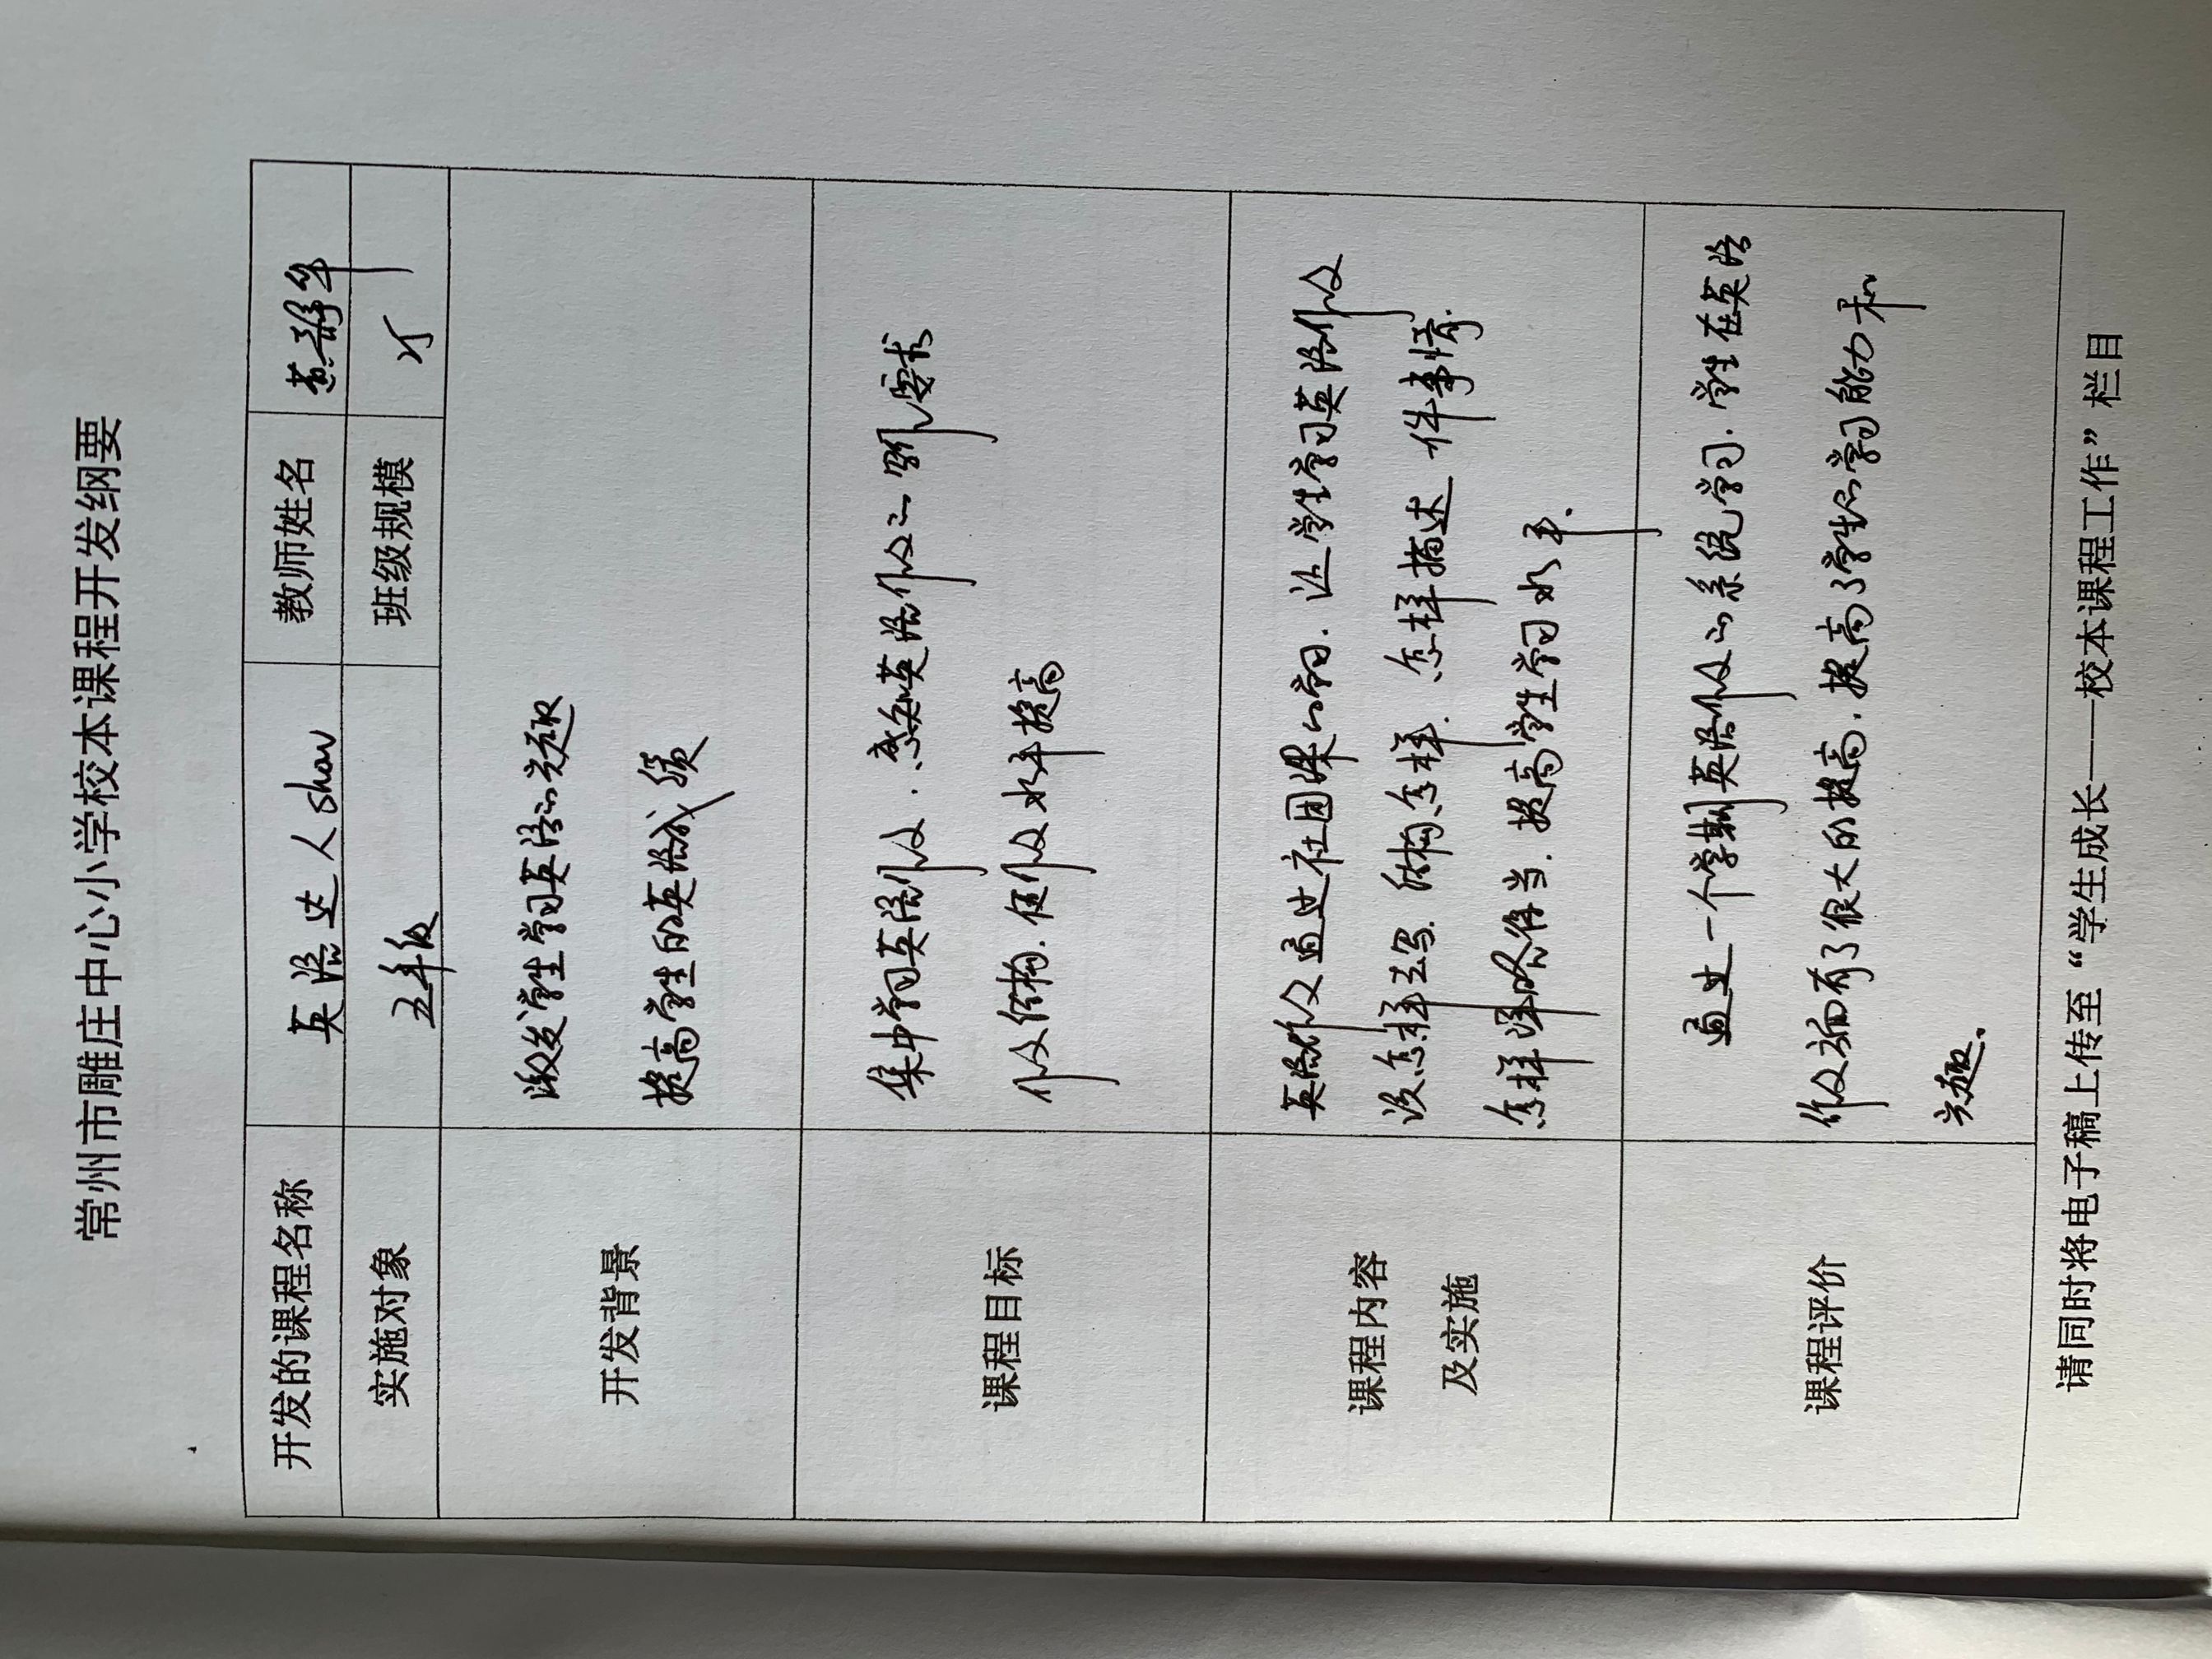 常州市雕庄中心小学校本课程开发纲要
开发的课程名称 英语达人show 教师姓名 黄
实施对象 五年级 班级规模 25
开发背景
激发学生学习英语的兴趣
提高学生的英语成绩
课程目标
集中学习英语作文.感知英语作文的 要求
作文结构.使作文水平提高
课程内容
及实施
英语作文通过社团课的学习.让学生学习英语作文
该怎样去写.结构怎样.怎样描述一件事情.
怎样详略得当.提高学生学习水平.
课程评价
通过一个学期英语作文的系统学习.学生在英语
作文方面有了很大的提高.提高了学生的学习能力和
兴趣.
请同时将电子稿上传至“学生成长——校本课程工作”栏目